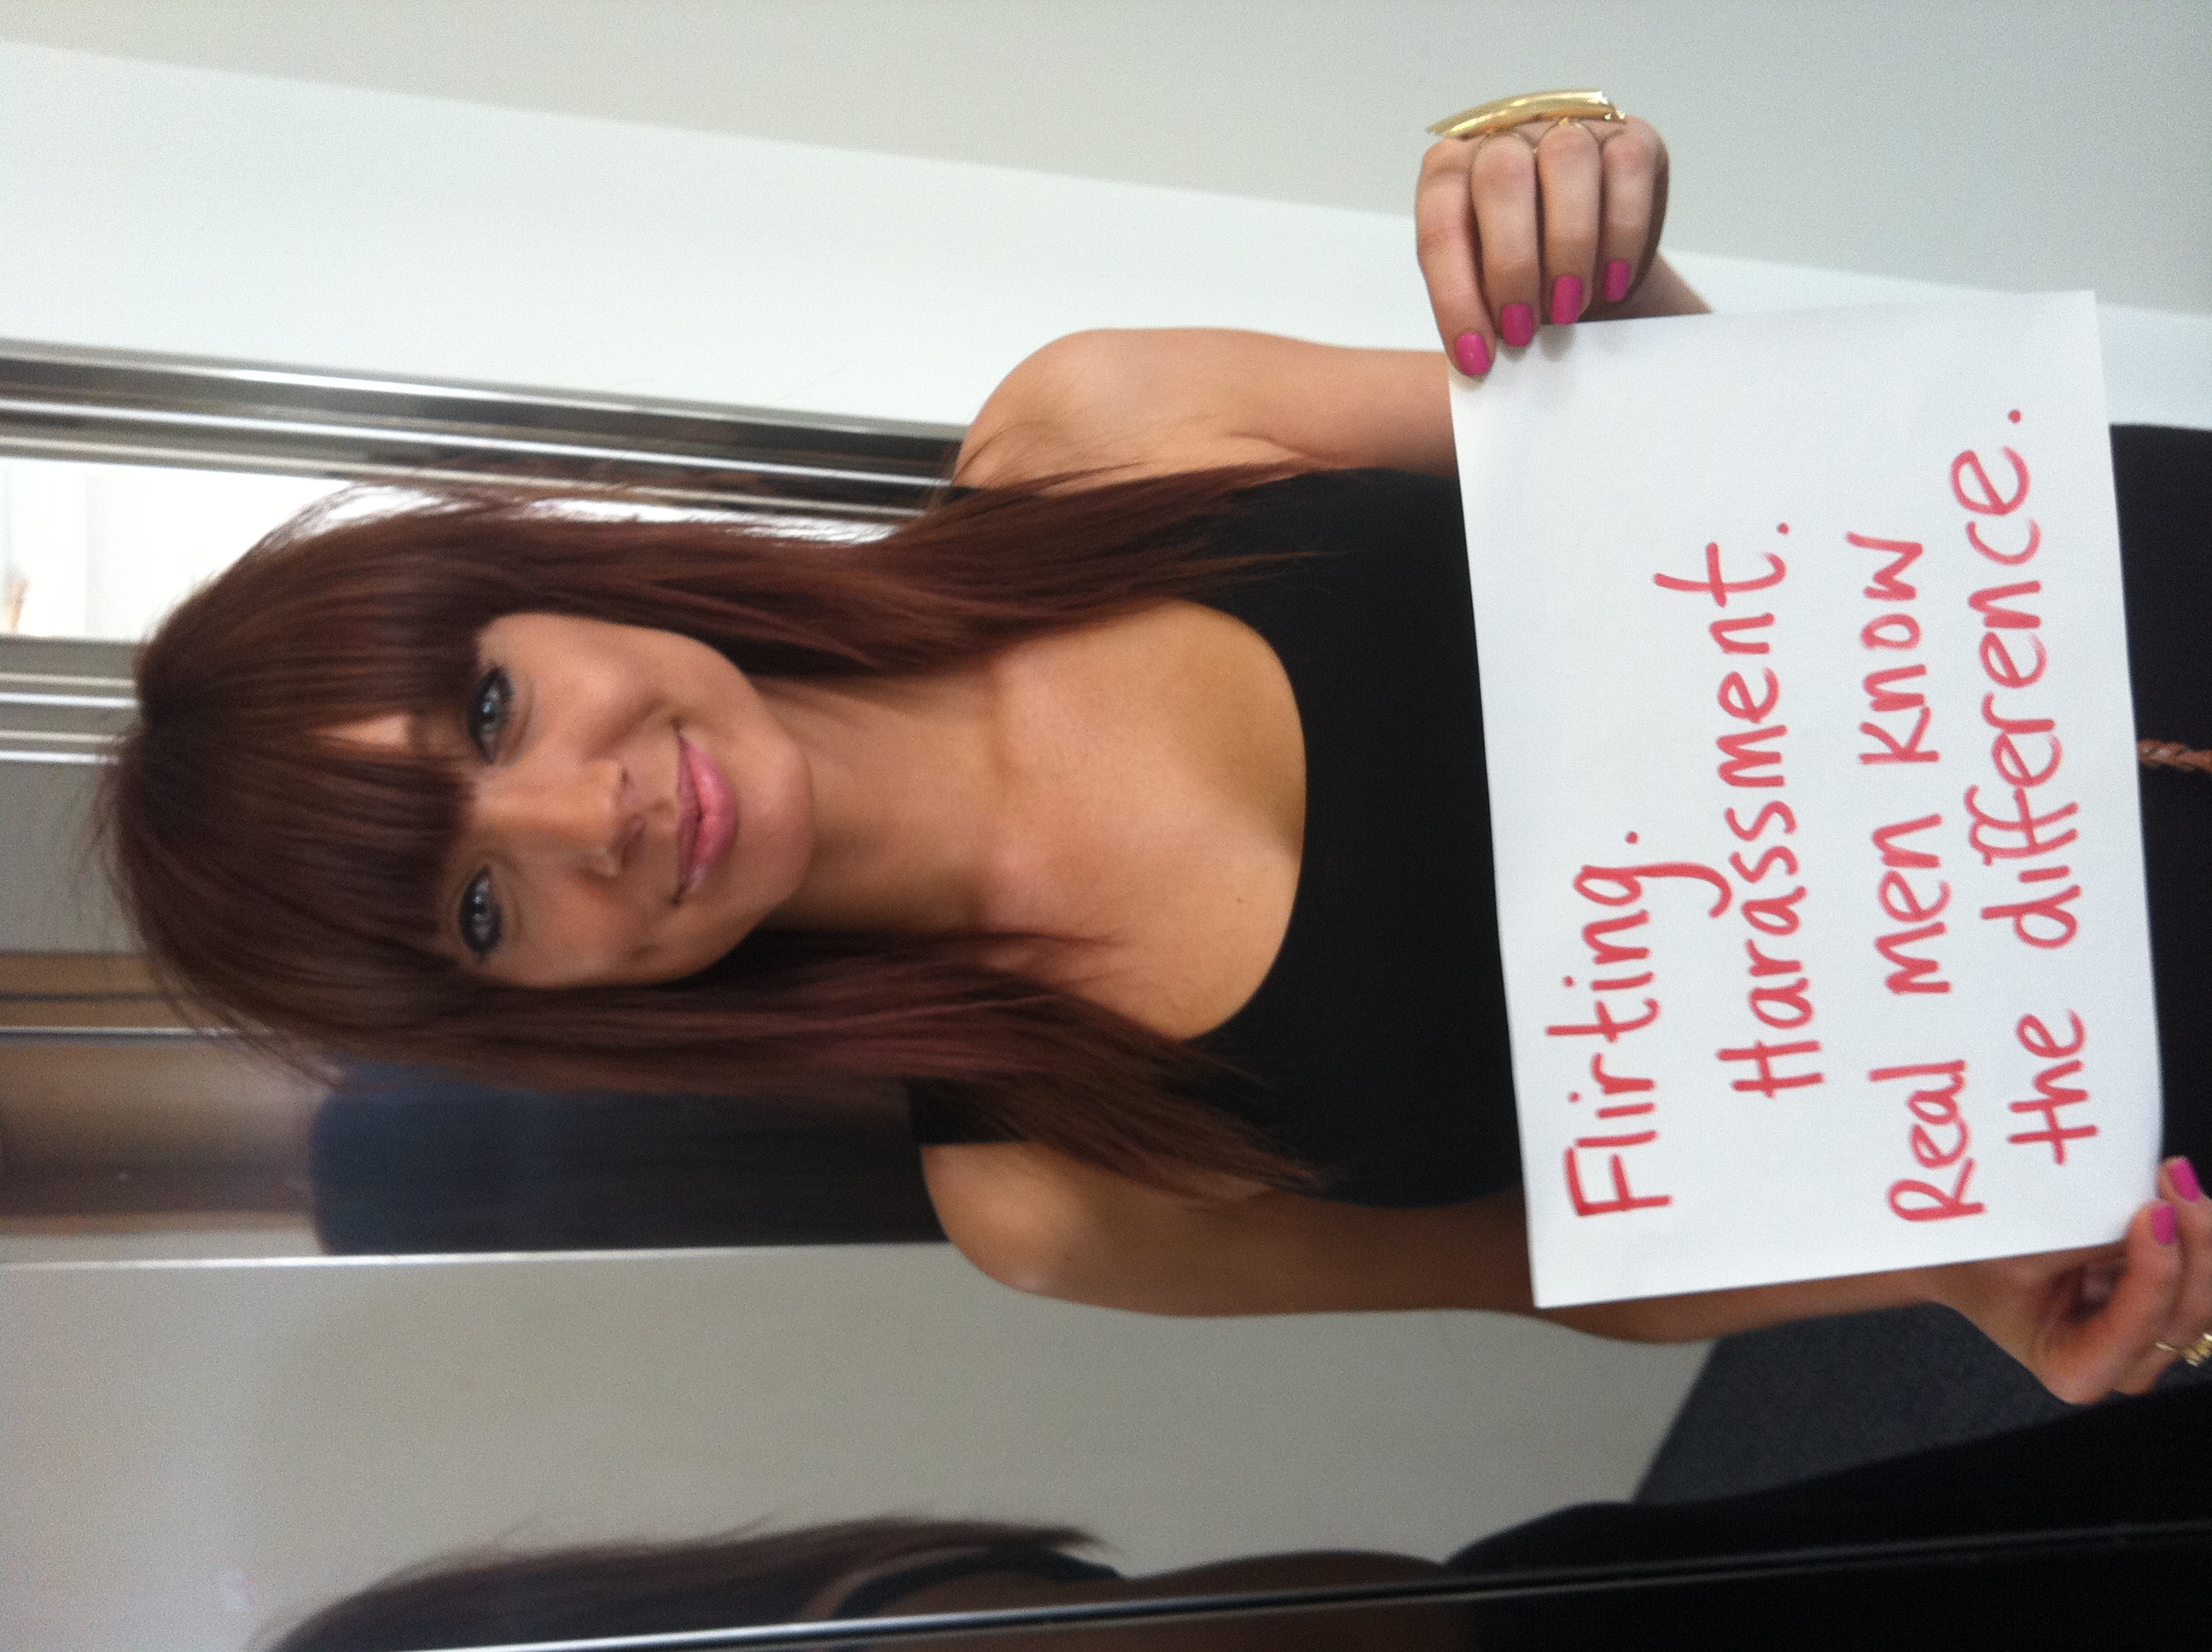 Flirting.
Harassment.
Real men know
the difference.